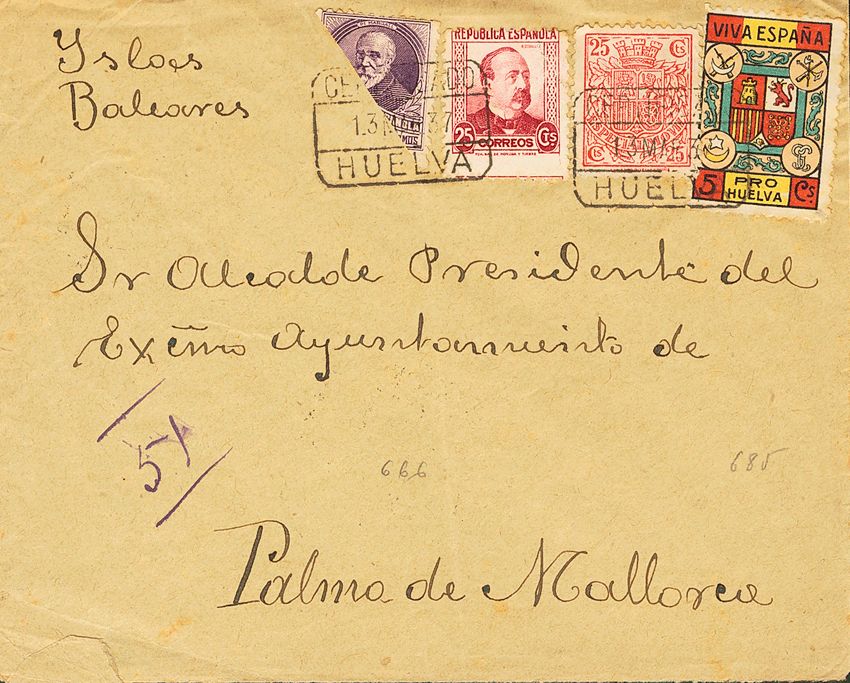 Yslas
Baleares
CERTIFICADO
HUELVA
REPUBLICA ESPAÑOLA
25 CORREOS Cts
25 Cs
Cs 25
HUELVA
VIVA ESPAÑA
5 PRO Cs.
HUELVA
Sr Alcalde Presidente del
Excmo Ayuntamiento de
57
666
685
Palma de Mallorca